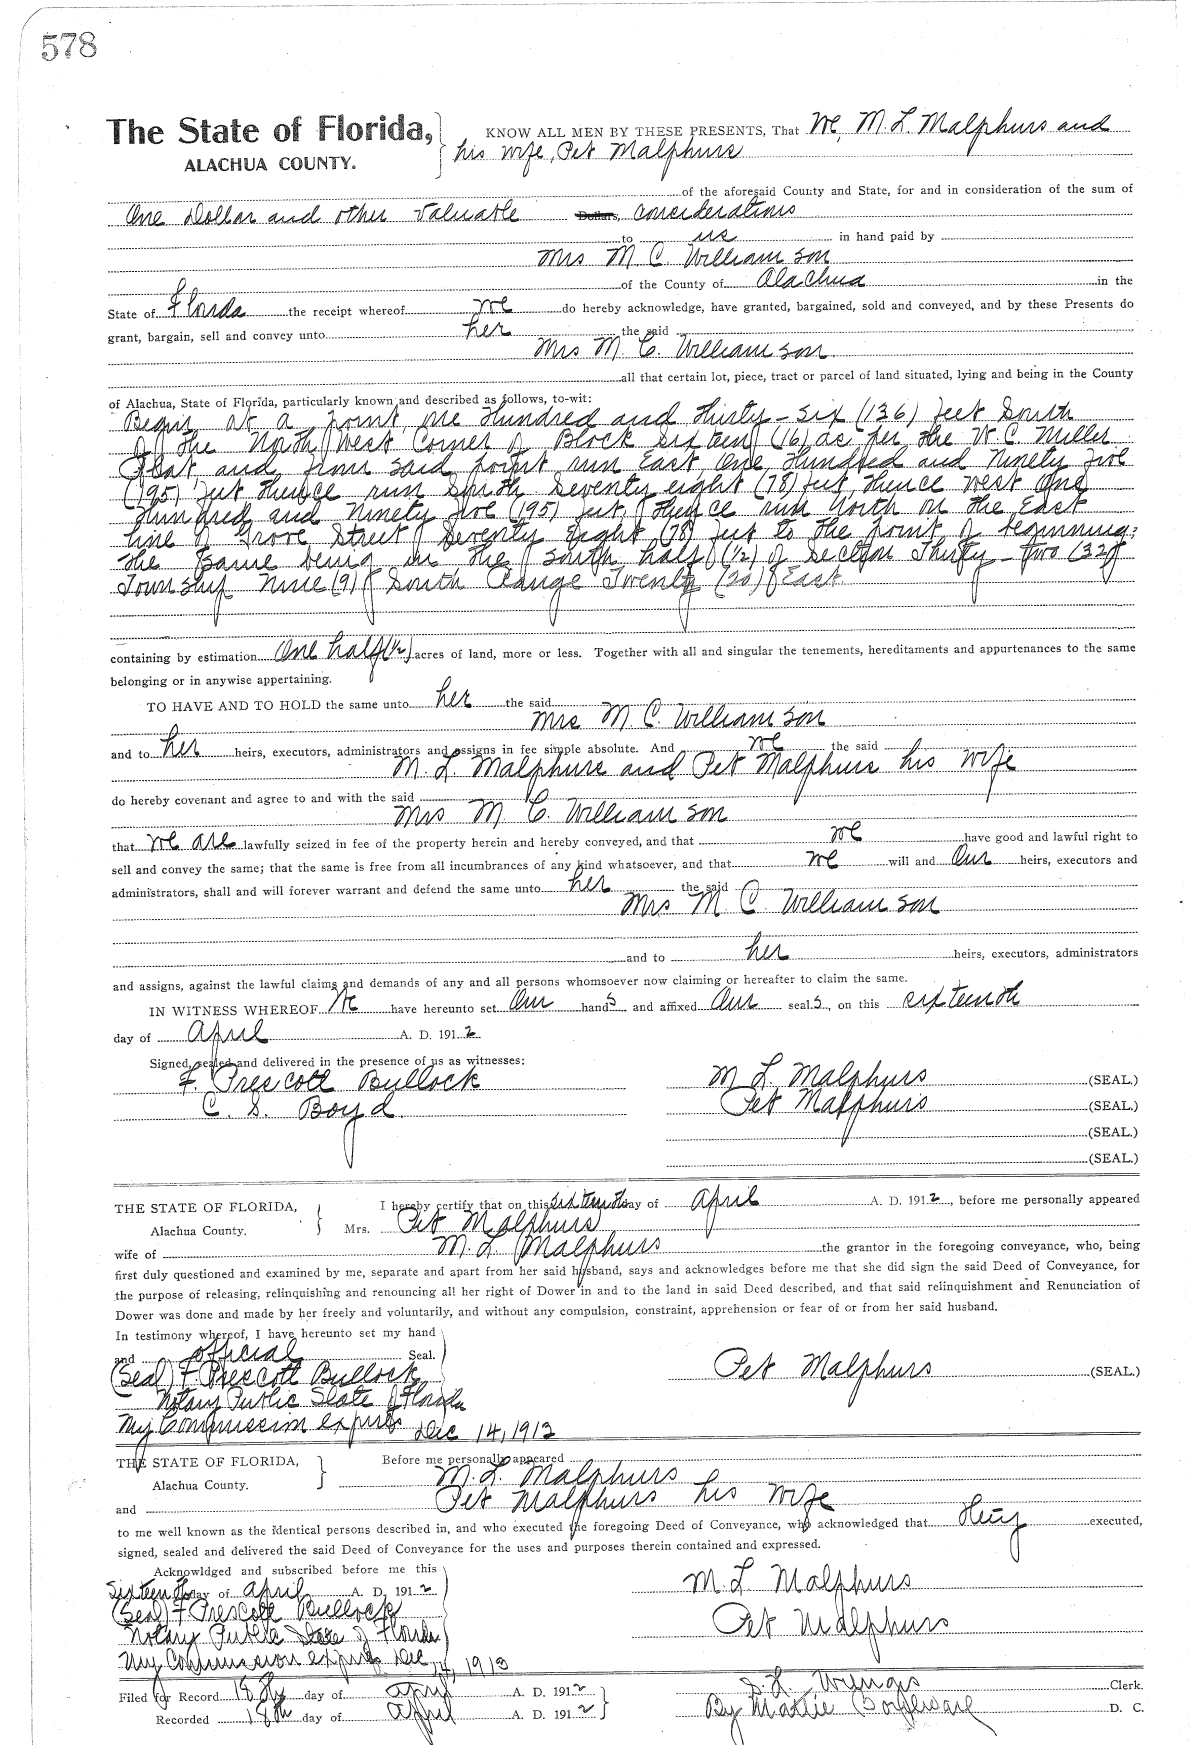 578
The State of Florida,
ALACHUA COUNTY.
KNOW ALL MEN BY THESE PRESENTS, That We, M. L. Malphurs and
his wife, Pet Malphurs
of the aforesaid County and State, for and in consideration of the sum of
One Dollar and other valuable Dollars, considerations
to us in hand paid by
Mrs M C. Williamson
of the County of Alachua in the
State of Florida the receipt whereof we do hereby acknowledge, have granted, bargained, sold and conveyed, and by these Presents do
grant, bargain, sell and convey unto her the said
Mrs M. C. Williamson
all that certain lot, piece, tract or parcel of land situated, lying and being in the County
of Alachua, State of Florida, particularly known and described as follows, to-wit:
Begin at a point one Hundred and Thirty-six (136) feet South
of the North West Corner of Block Sixteen (16) as per the W C Miller
Plat and from said point run East One Hundred and Ninety five
(195) feet thence run South Seventy eight (78) feet, thence west One
Hundred and Ninety five (195) feet, thence run North on the East
line of Grove Street Seventy Eight (78) feet to the point of beginning;
the same being in the South half (1/2) of Section Thirty-two (32)
Township Nine (9) South Range Twenty (20) East
containing by estimation One half (1/2) acres of land, more or less. Together with all and singular the tenements, hereditaments and appurtenances to the same
belonging or in anywise appertaining.
TO HAVE AND TO HOLD the same unto her the said
Mrs M C. Williamson
and to her heirs, executors, administrators and assigns in fee simple absolute. And we the said
M. L. Malphurs and Pet Malphurs his wife
do hereby covenant and agree to and with the said
Mrs M. C. Williamson
that we are lawfully seized in fee of the property herein and hereby conveyed, and that we have good and lawful right to
sell and convey the same; that the same is free from all incumbrances of any kind whatsoever, and that we will and Our heirs, executors and
administrators, shall and will forever warrant and defend the same unto her the said
Mrs M C. Williamson
and to her heirs, executors, administrators
and assigns, against the lawful claims and demands of any and all persons whomsoever now claiming or hereafter to claim the same.
IN WITNESS WHEREOF We have hereunto set Our hands and affixed Our seals, on this sixteenth
day of April A. D. 1912
Signed, sealed and delivered in the presence of us as witnesses:
F. Prescott Bullock
C. S. Boyd
M L. Malphurs (SEAL.)
Pet Malphurs (SEAL.)
(SEAL.)
(SEAL.)
THE STATE OF FLORIDA,
Alachua County.
I hereby certify that on this sixteenth day of April A. D. 1912, before me personally appeared
Mrs. Pet Malphurs
wife of M. L. Malphurs the grantor in the foregoing conveyance, who, being
first duly questioned and examined by me, separate and apart from her said husband, says and acknowledges before me that she did sign the said Deed of Conveyance, for
the purpose of releasing, relinquishing and renouncing all her right of Dower in and to the land in said Deed described, and that said relinquishment and Renunciation of
Dower was done and made by her freely and voluntarily, and without any compulsion, constraint, apprehension or fear of or from her said husband.
In testimony whereof, I have hereunto set my hand
and official Seal.
(Seal) F Prescott Bullock
Notary Public State of Florida
My Commission expires Dec 14, 1913
Pet Malphurs (SEAL)
THE STATE OF FLORIDA,
Alachua County.
Before me personally appeared
M. L. Malphurs
and Pet Malphurs his wife
to me well known as the identical persons described in, and who executed the foregoing Deed of Conveyance, who acknowledged that they executed,
signed, sealed and delivered the said Deed of Conveyance for the uses and purposes therein contained and expressed.
Acknowldged and subscribed before me this
Sixteenth day of April A. D. 1912
(Seal) F Prescott Bullock
Notary Public State of Florida
My Commission expires Dec 14, 1913
M. L Malphurs
Pet Malphurs
Filed for Record 18th day of April A. D. 1912
Recorded 18th day of April A. D. 1912
S. H. Wynges Clerk.
By Mattie D. C.